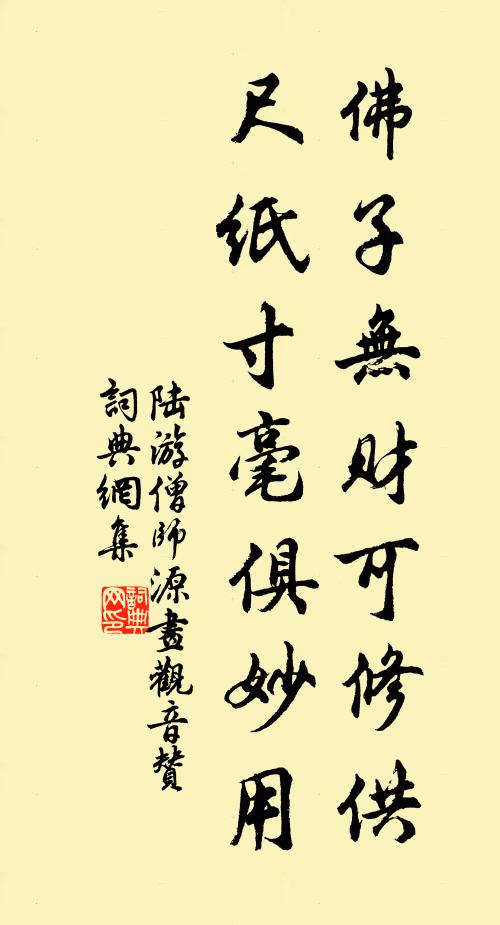 佛子無財可修供
尺紙寸毫俱妙用
陆游僧師源畫觀音贊
詞典網集
詞典网印